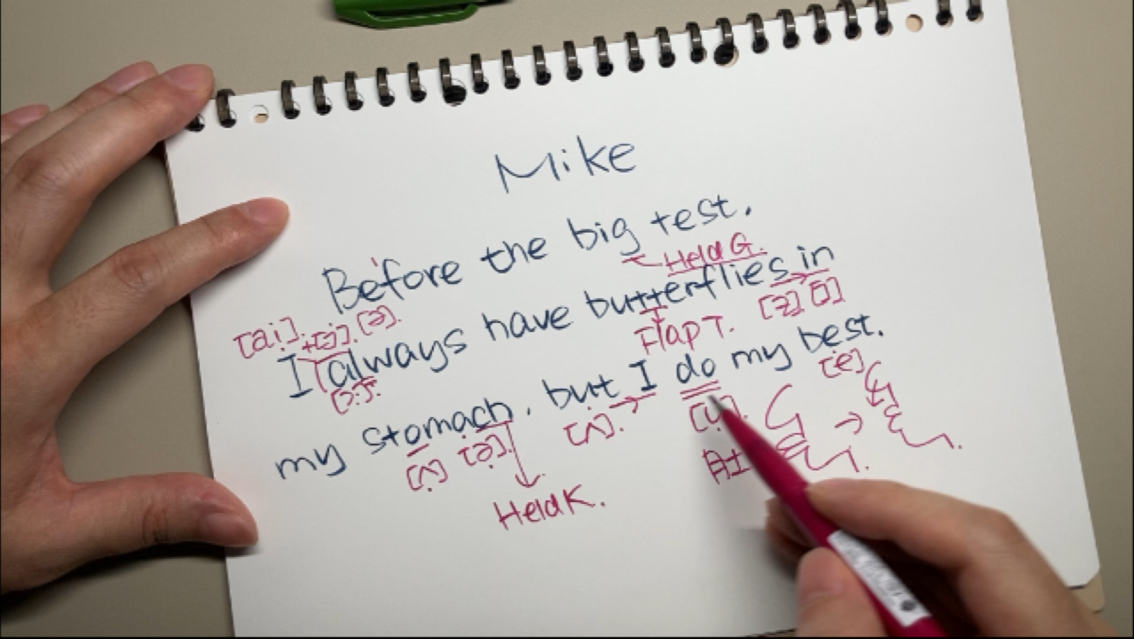 Mike
Before the big test.
Held G.
I always have butterflies in
[ai]. +[j]. [ə].
[ɔ:].
Flap T. [z] [I]
my stomach, but I do my best.
[ʌ] [ə]. [ʌ]. [e]
Held K.